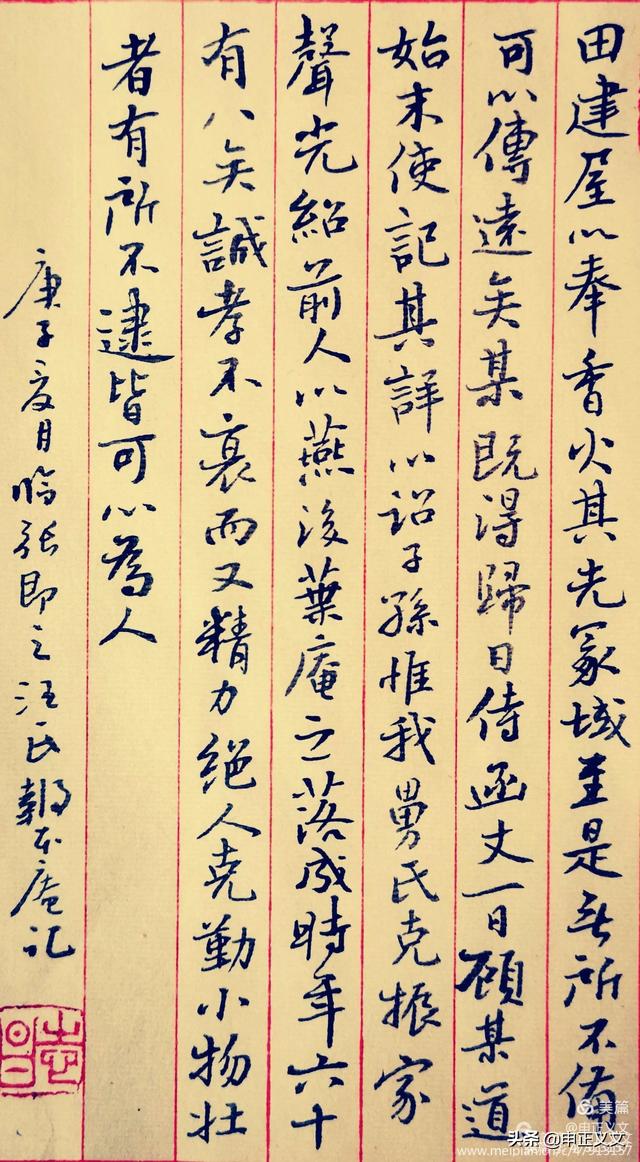 田建屋以奉香火其先冢域至是無所不備
可以傳遠矣某既得歸日侍函丈一日顧某道
始末使記其詳以詔子孫惟我舅氏克振家
聲光紹前人以燕後葉庵之落成時年六十
有八矣誠孝不衰而又精力絕人克勤小物壯
者有所不逮皆可以為人
庚子夏月臨張即之汪氏報本庵記
美篇
@申正义文
头条 @申正义文